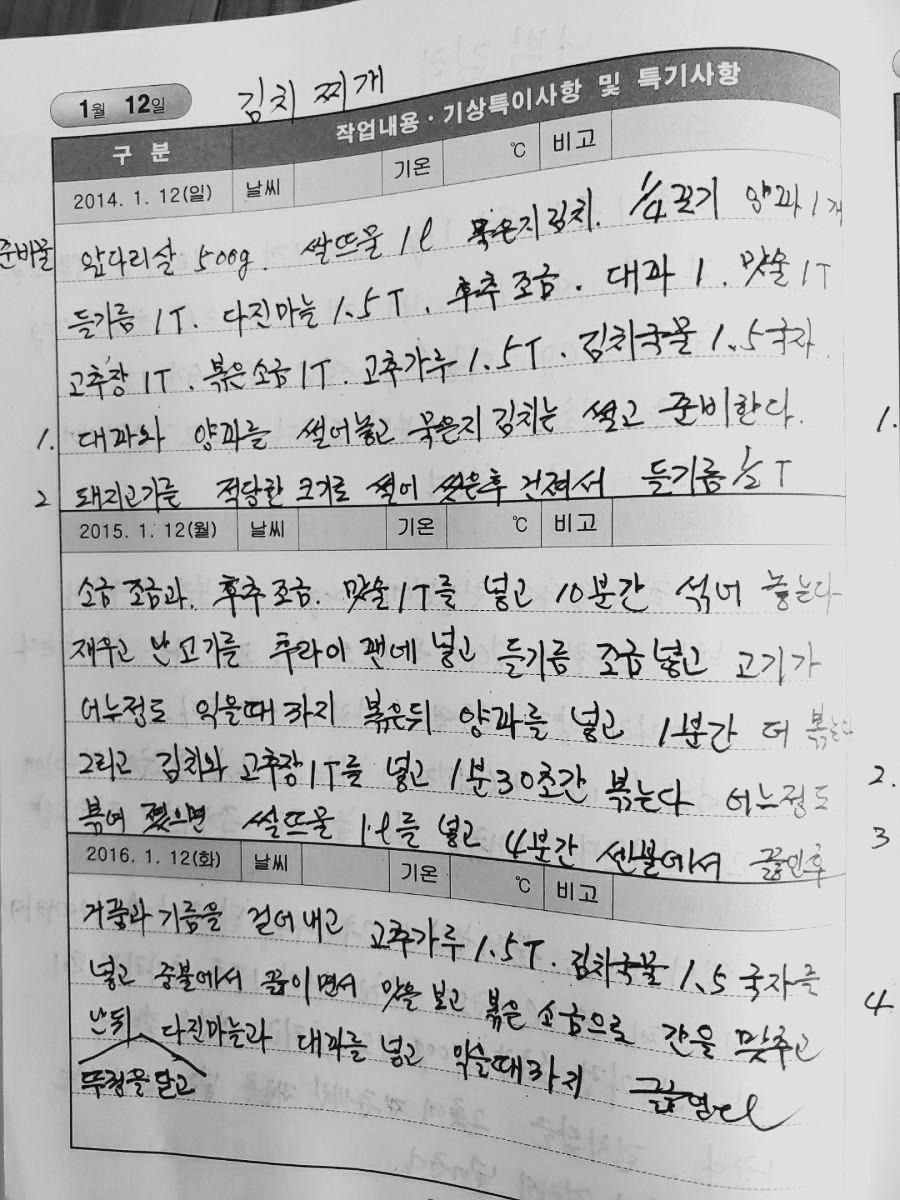 김치찌개
1월 12일
구 분 작업내용·기상특이사항 및 특기사항
2014. 1. 12(일) 날씨 기온 ℃ 비고
준비물 앞다리살 500g. 쌀뜨물 1ℓ 묵은지김치. 1/4꼬기 양파 1개
들기름 1T. 다진마늘 1.5T. 후추조금. 대파 1. 맛술 1T
고추장 1T. 볶은소금 1T. 고추가루 1.5T. 김치국물 1.5국자.
1. 대파와 양파를 썰어놓고 묵은지김치는 썰고 준비한다. 1.
2 돼지고기를 적당한 크기로 썩어 씻은후 건져서 들기름 1/2T
2015. 1. 12(월) 날씨 기온 ℃ 비고
소금조금과. 후추조금. 맛술1T를 넣고 10분간 석어 놓는다
재우고 난고기를 후라이 팬에 넣고 들기름 조금넣고 고기가
어누정도 익을때 까지 볶은뒤 양파를 넣고 1분간 더 볶는다
그리고 김치와 고추장1T를 넣고 1분30초간 볶는다 어누정도 2.
볶여 졌으면 쌀뜨물 1ℓ를 넣고 4분간 센불에서 끓인후 3
2016. 1. 12(화) 날씨 기온 ℃ 비고
거품과 기름을 걷어내고 고추가루 1.5T. 김치국물 1.5 국자를
넣고 중불에서 끓이면서 맛을 보고 볶은 소금으로 간을 맞추고 4
난뒤 다진마늘과 대파를 넣고 익을때까지
뚜껑을 닫고